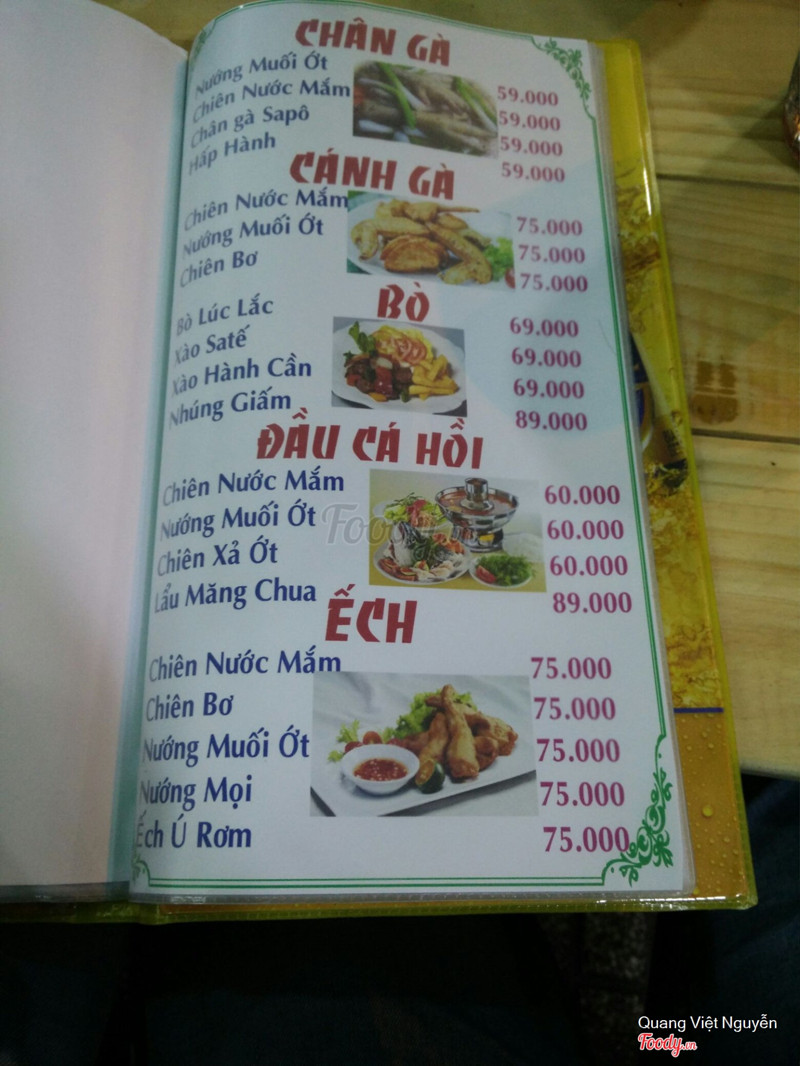 CHÂN GÀ
Nướng Muối Ớt 59.000
Chiên Nước Mắm 59.000
Chân gà Sapô 59.000
Hấp Hành 59.000
CÁNH GÀ
Chiên Nước Mắm 75.000
Nướng Muối Ớt 75.000
Chiên Bơ 75.000
BÒ
Bò Lúc Lắc 69.000
Xào Satế 69.000
Xào Hành Cần 69.000
Nhúng Giấm 89.000
ĐẦU CÁ HỒI
Chiên Nước Mắm 60.000
Nướng Muối Ớt 60.000
Chiên Xả Ớt 60.000
Lẩu Măng Chua 89.000
ẾCH
Chiên Nước Mắm 75.000
Chiên Bơ 75.000
Nướng Muối Ớt 75.000
Nướng Mọi 75.000
Ếch Ú Rơm 75.000
Foody.vn
Quang Việt Nguyễn
Foody.vn